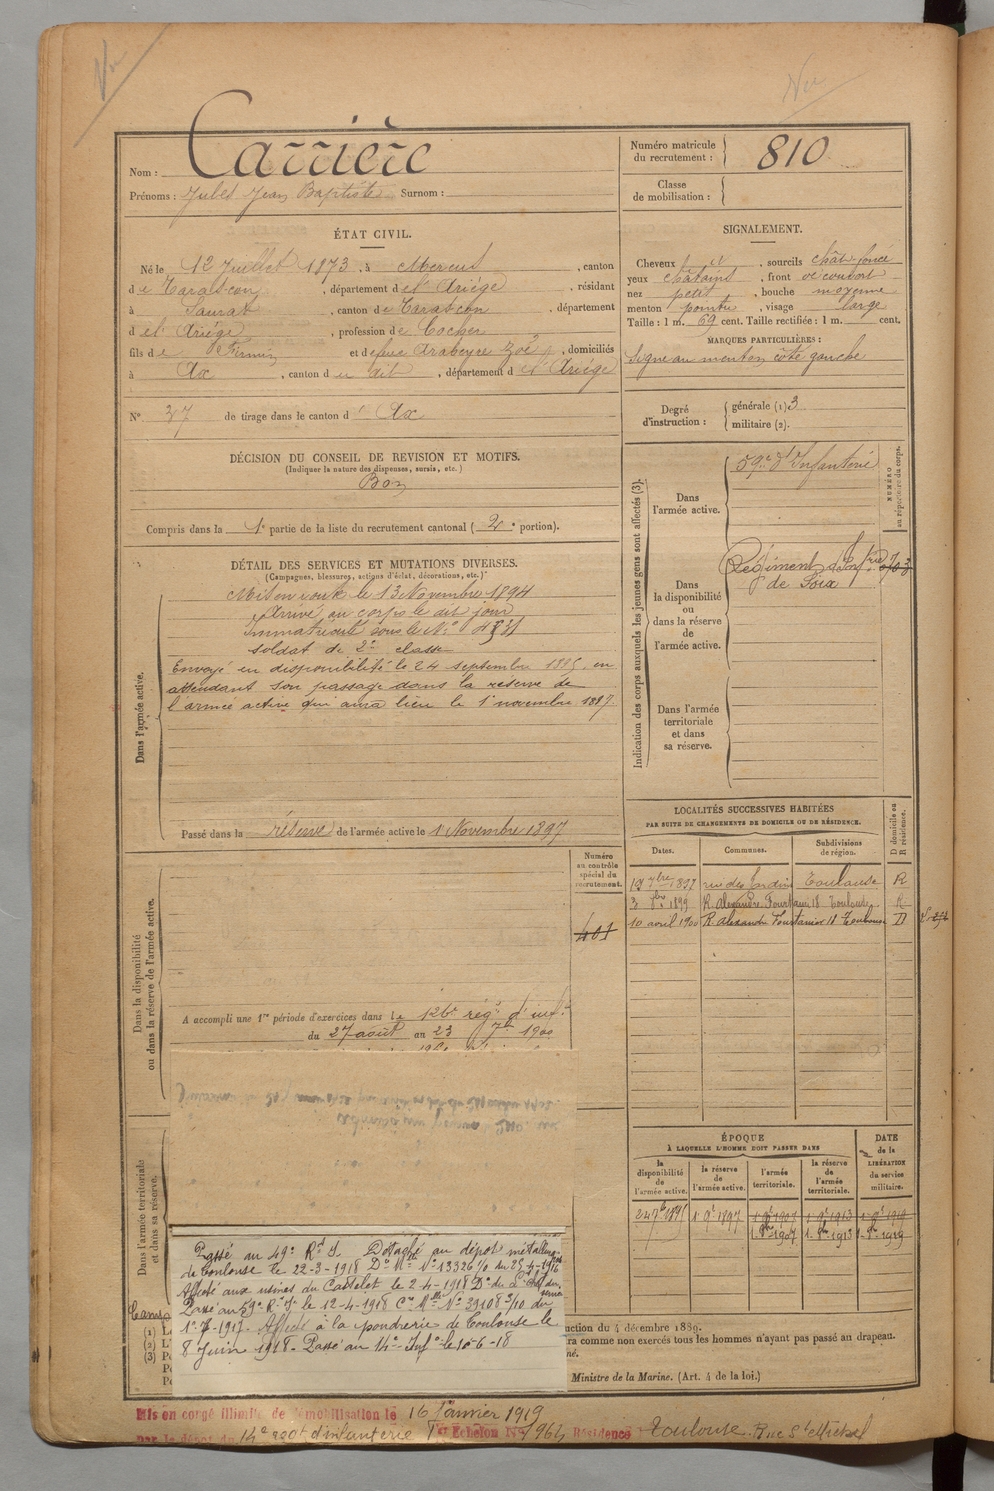 Vu
Vu
Nom : Carrière
Prénoms : Jules Jean Baptiste Surnom :
Numéro matricule du recrutement : 810
Classe de mobilisation :
ÉTAT CIVIL.
Né le 12 Juillet 1873, à Mercus, canton
de Tarascon, département de l'Ariége, résidant
à Saurat, canton de Tarascon, département
de l'Ariége, profession de Cocher
fils de Firmin et de feue Arabeyre Zoé, domiciliés
à Ax, canton d dit, département de l'Ariége
N° 37 de tirage dans le canton d' Ax
SIGNALEMENT.
Cheveux, sourcils chât. foncé
yeux châtains, front découvert
nez petit, bouche moyenne
menton pointu, visage large
Taille : 1 m. 69 cent. Taille rectifiée : 1 m. cent.
MARQUES PARTICULIÈRES :
Signe au menton côté gauche
Degré d'instruction :
générale (1). 3
militaire (2).
DÉCISION DU CONSEIL DE REVISION ET MOTIFS.
(Indiquer la nature des dispenses, sursis, etc.)
Bon
Compris dans la 1e partie de la liste du recrutement cantonal (2e portion).
DÉTAIL DES SERVICES ET MUTATIONS DIVERSES.
(Campagnes, blessures, actions d'éclat, décorations, etc.)
Dans l'armée active.
Mis en route le 13 Novembre 1894
Arrivé au corps le dit jour
Immatriculé sous le N°
soldat de 2e classe
Envoyé en disponibilité le 24 septembre 1895, en
attendant son passage dans la réserve de
l'armée active qui aura lieu le 1er novembre 1897.
Passé dans la réserve de l'armée active le 1er Novembre 1897
Indication des corps auxquels les jeunes gens sont affectés (3).
NUMÉRO au répertoire du corps.
Dans l'armée active.
59e d'Infanterie
Dans la disponibilité ou dans la réserve de l'armée active.
Régiment d'Infrie
de Foix
Dans l'armée territoriale et dans sa réserve.
LOCALITÉS SUCCESSIVES HABITÉES
PAR SUITE DE CHANGEMENTS DE DOMICILE OU DE RÉSIDENCE.
Dates. Communes. Subdivisions de région. D domicile ou R résidence.
7bre 1897 rue des Jardins Toulouse R
3 1899 R. Alexandre Fourtanier 18 Toulouse R
10 avril 1900 R Alexandre Fourtanier 18 Toulouse D
Dans la disponibilité ou dans la réserve de l'armée active.
Numéro au contrôle spécial du recrutement.
401
A accompli une 1re période d'exercices dans le 126e rég. d'inf.
du 27 août au 23 7bre 1900
Dans l'armée territoriale et dans sa réserve.
ÉPOQUE
À LAQUELLE L'HOMME DOIT PASSER DANS
la disponibilité de l'armée active. la réserve de l'armée active. l'armée territoriale. la réserve de l'armée territoriale. DATE de la LIBÉRATION du service militaire.
24 7bre 1895 1 9e 1897 1 9e 1907 1 9e 1913 1 9e 1919
1 9bre 1907 1 9bre 1913 1 9bre 1919
Passé au 49e Rt I. Détaché au dépôt métallurg.
de Toulouse le 22-3-1918 Don Mlle N° 13326 du 25-4-1916
Affecté aux usines du Castelet le 2-4-1918
Passé au 59e R. I. le 12-4-1918 N° 39108 3/10 du
1917. Affecté à la poudrerie de Toulouse le
8 Juin 1918. Passé au 14e Inf le 10-6-18
Camp
(1)
(2)
(3)
uction du 4 décembre 1889.
ra comme non exercés tous les hommes n'ayant pas passé au drapeau.
né.
Ministre de la Marine. (Art. 4 de la loi.)
Mis en congé illimité de démobilisation le 16 Janvier 1919
par le dépôt du 14e régt d'infanterie 1er Echelon N° 964 Résidence Toulouse. Rue St Michel